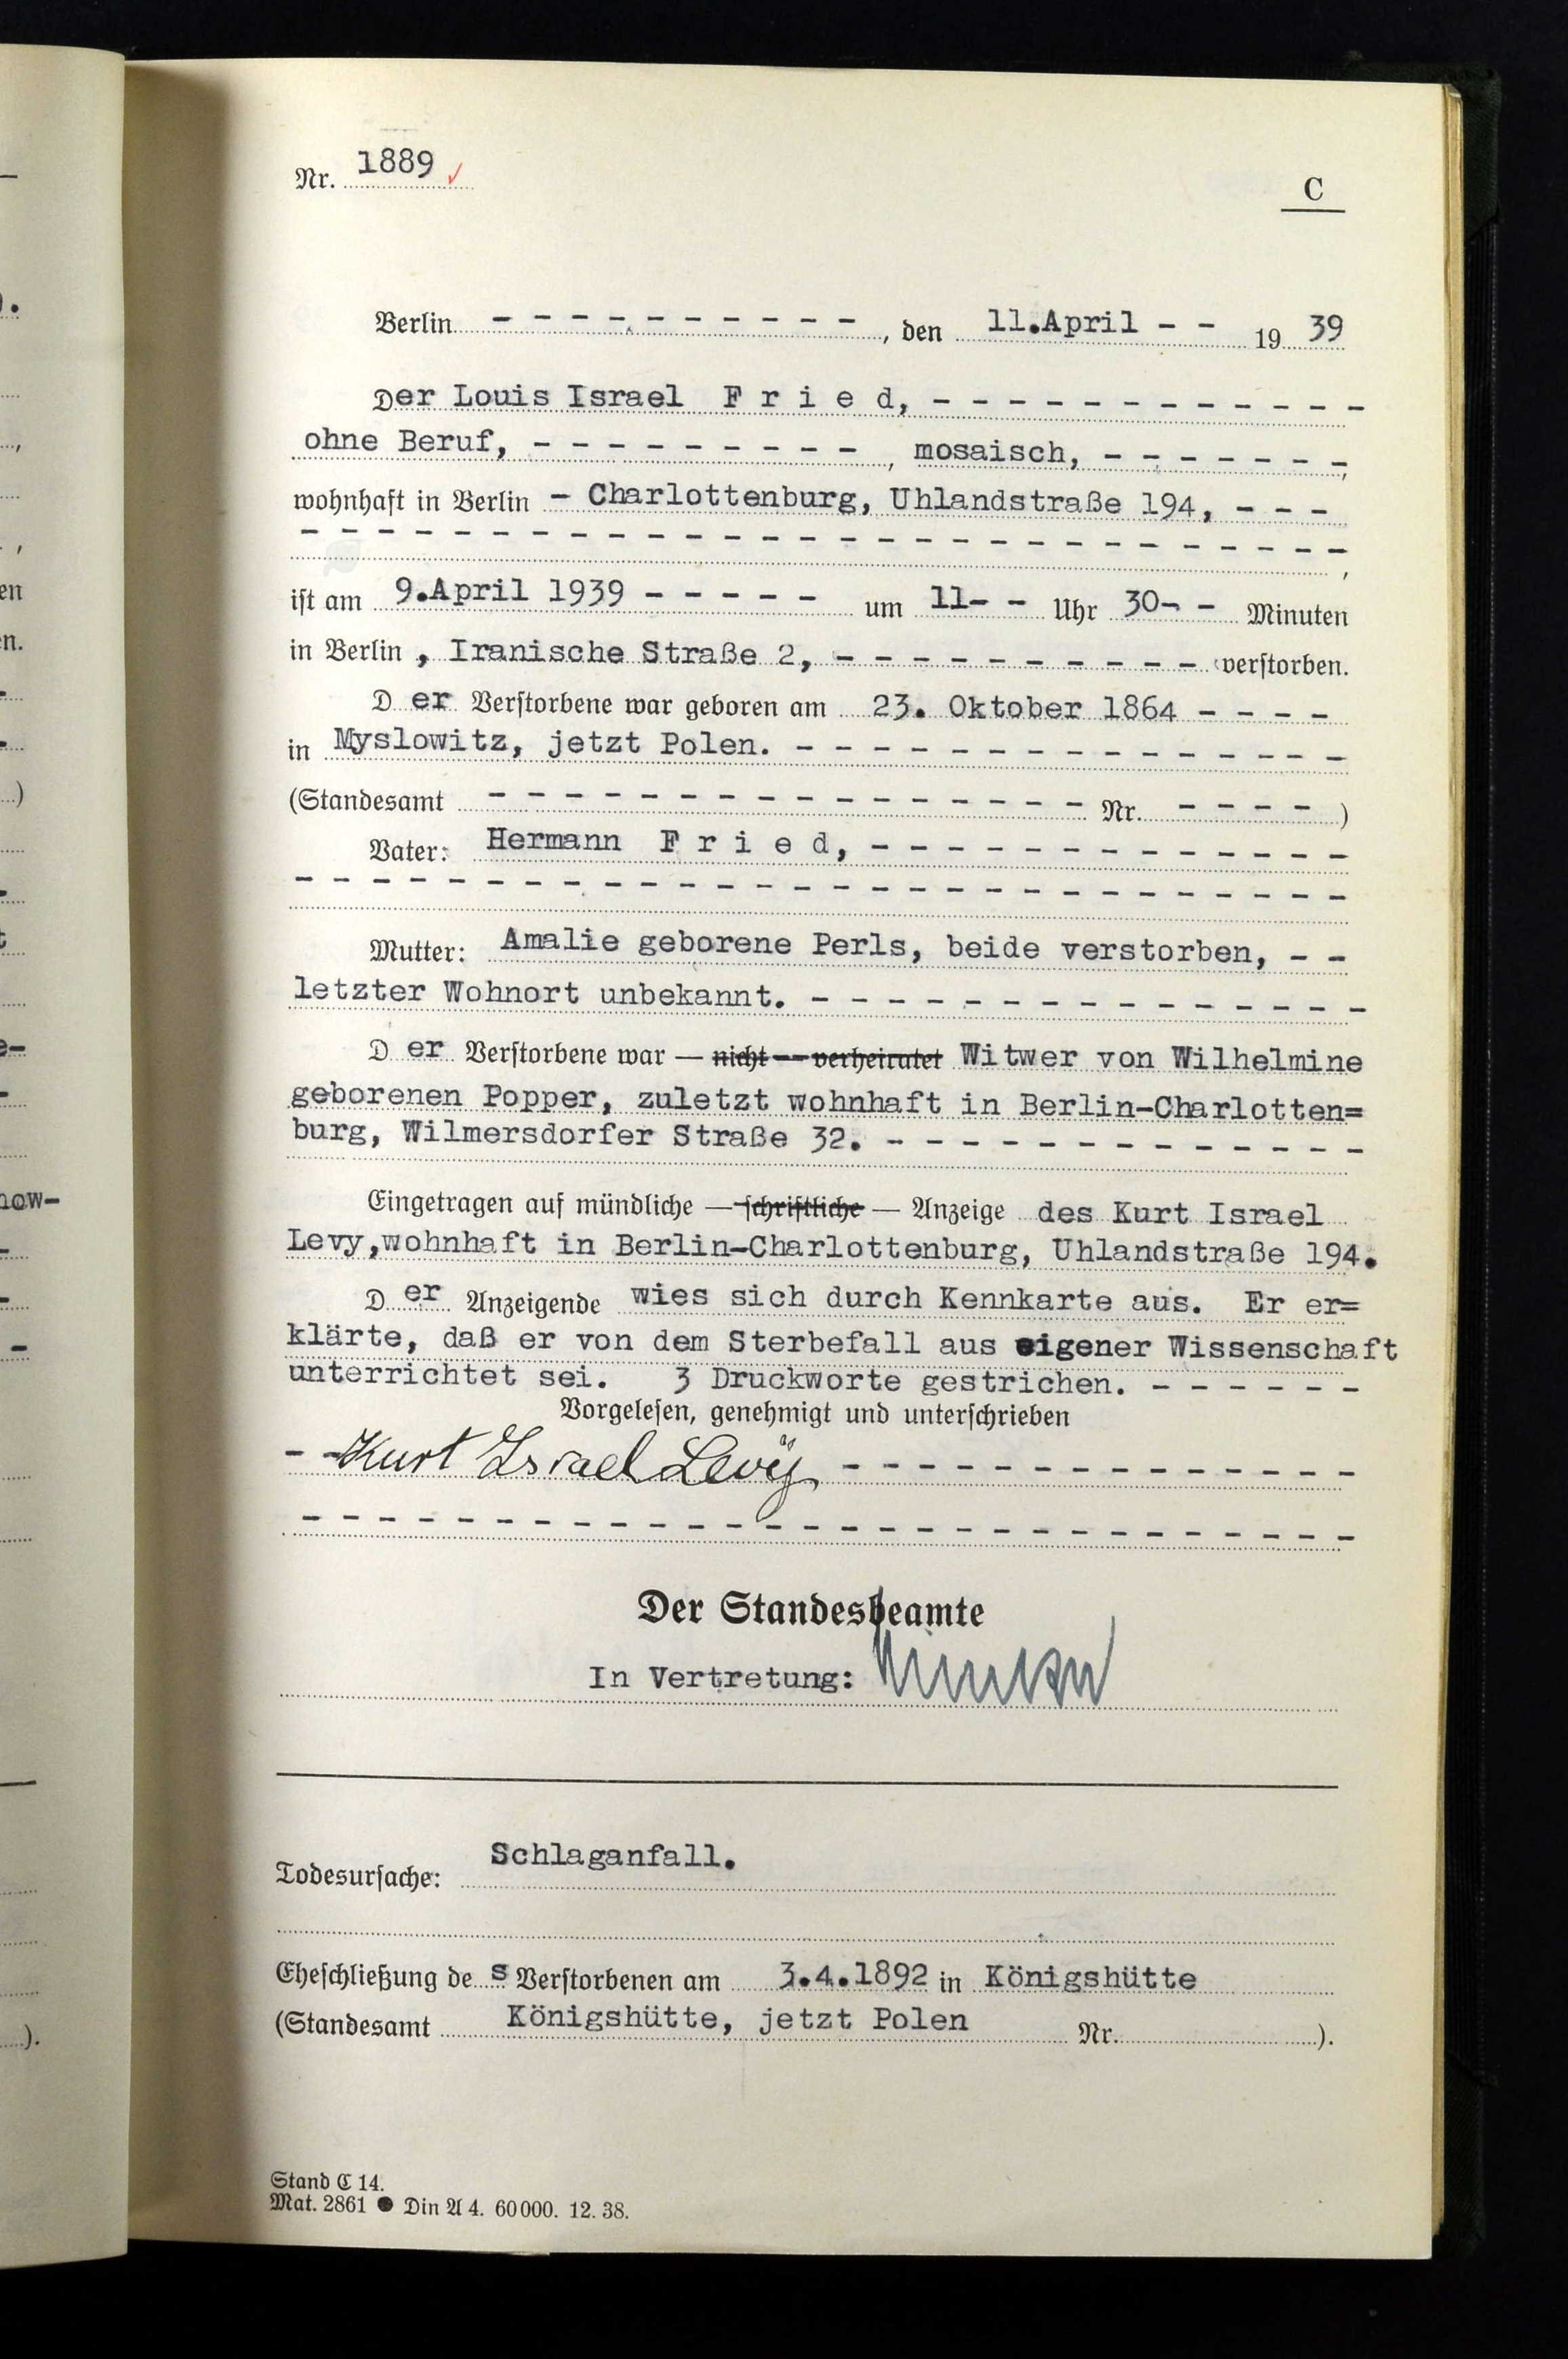 Nr. 1889
C
Berlin - - - - - - - - - -, den 11.April - - 19 39
Der Louis Israel F r i e d, - - - - - - - - - - - -
ohne Beruf, - - - - - - - - - , mosaisch, - - - - - - -,
wohnhaft in Berlin - Charlottenburg, Uhlandstraße 194, - - -
- - - - - - - - - - - - - - - - - - - - - - - - - - - - ,
ist am 9.April 1939 - - - - - um 11- - Uhr 30- - Minuten
in Berlin , Iranische Straße 2, - - - - - - - - - - verstorben.
D er Verstorbene war geboren am 23. Oktober 1864 - - - -
in Myslowitz, jetzt Polen. - - - - - - - - - - - - - - -
(Standesamt - - - - - - - - - - - - - - - - Nr. - - - - )
Vater: Hermann F r i e d, - - - - - - - - - - - - -
- - - - - - - - - - - - - - - - - - - - - - - - - - - -
Mutter: Amalie geborene Perls, beide verstorben, - -
letzter Wohnort unbekannt. - - - - - - - - - - - - - - -
D er Verstorbene war — nicht — verheiratet Witwer von Wilhelmine
geborenen Popper, zuletzt wohnhaft in Berlin-Charlotten=
burg, Wilmersdorfer Straße 32. - - - - - - - - - - - - -
Eingetragen auf mündliche — schriftliche — Anzeige des Kurt Israel
Levy,wohnhaft in Berlin-Charlottenburg, Uhlandstraße 194.
D er Anzeigende wies sich durch Kennkarte aus. Er er=
klärte, daß er von dem Sterbefall aus eigener Wissenschaft
unterrichtet sei. 3 Druckworte gestrichen. - - - - - -
Vorgelesen, genehmigt und unterschrieben
- - Kurt Israel Levÿ - - - - - - - - - - - - - -
- - - - - - - - - - - - - - - - - - - - - - - - - - - -
Der Standesbeamte
In Vertretung:
Todesursache: Schlaganfall.
Eheschließung de s Verstorbenen am 3.4.1892 in Königshütte
(Standesamt Königshütte, jetzt Polen Nr. ).
Stand C 14.
Mat. 2861 ● Din A 4. 60000. 12. 38.